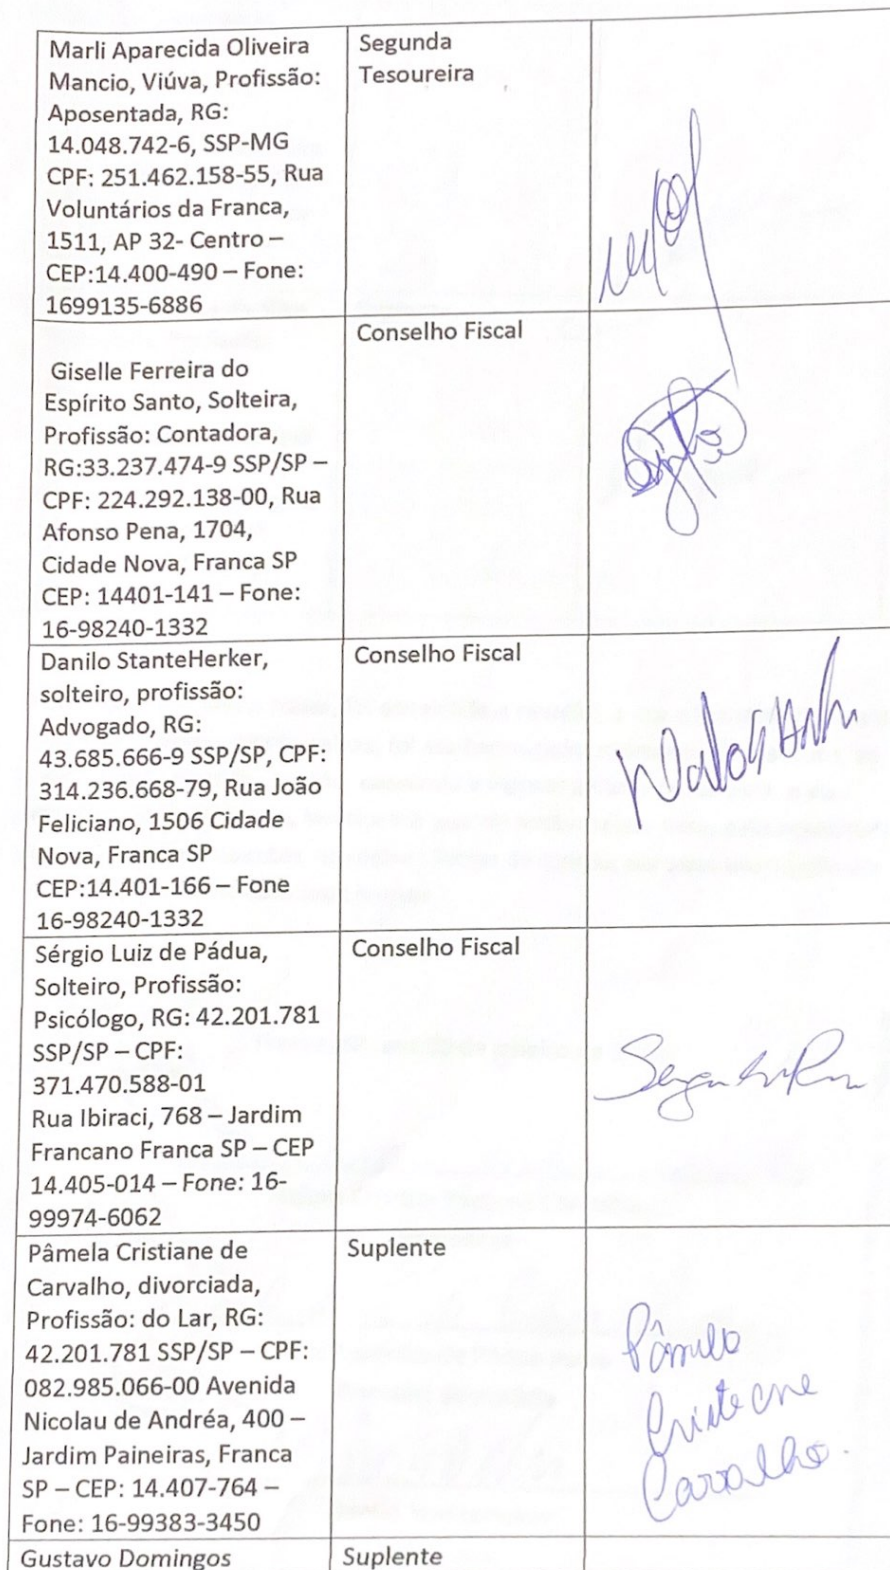 Marli Aparecida Oliveira
Mancio, Viúva, Profissão:
Aposentada, RG:
14.048.742-6, SSP-MG
CPF: 251.462.158-55, Rua
Voluntários da Franca,
1511, AP 32- Centro –
CEP:14.400-490 – Fone:
1699135-6886
Segunda
Tesoureira
Giselle Ferreira do
Espírito Santo, Solteira,
Profissão: Contadora,
RG:33.237.474-9 SSP/SP –
CPF: 224.292.138-00, Rua
Afonso Pena, 1704,
Cidade Nova, Franca SP
CEP: 14401-141 – Fone:
16-98240-1332
Conselho Fiscal
Danilo StanteHerker,
solteiro, profissão:
Advogado, RG:
43.685.666-9 SSP/SP, CPF:
314.236.668-79, Rua João
Feliciano, 1506 Cidade
Nova, Franca SP
CEP:14.401-166 – Fone
16-98240-1332
Conselho Fiscal
Sérgio Luiz de Pádua,
Solteiro, Profissão:
Psicólogo, RG: 42.201.781
SSP/SP – CPF:
371.470.588-01
Rua Ibiraci, 768 – Jardim
Francano Franca SP – CEP
14.405-014 – Fone: 16-
99974-6062
Conselho Fiscal
Pâmela Cristiane de
Carvalho, divorciada,
Profissão: do Lar, RG:
42.201.781 SSP/SP – CPF:
082.985.066-00 Avenida
Nicolau de Andréa, 400 –
Jardim Paineiras, Franca
SP – CEP: 14.407-764 –
Fone: 16-99383-3450
Suplente
Pâmela
Cristiane
Carvalho.
Gustavo Domingos
Suplente